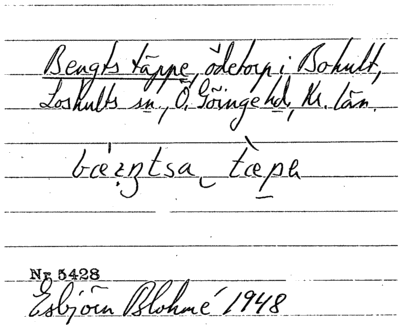 Bengts täppe, ödetorp i Bohult,
Loshults sn, Ö. Göinge hd, Kr. län.
Nr 5428
Esbjörn Blohmé 1948